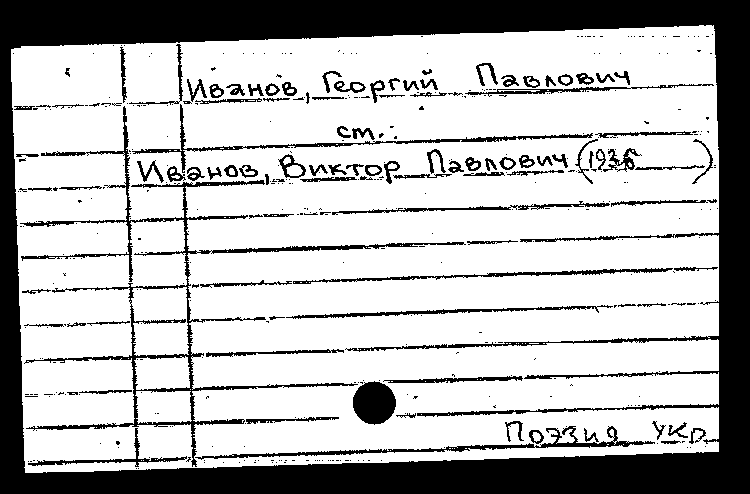 Иванов, Георгий Павлович
см.:
Иванов, Виктор Павлович
Поэзия укр